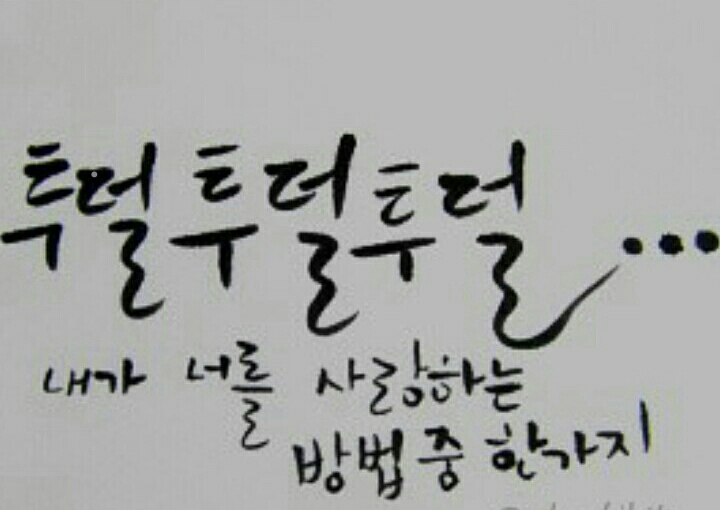 투덜투덜투덜...
내가 너를 사랑하는
방법 중 한가지